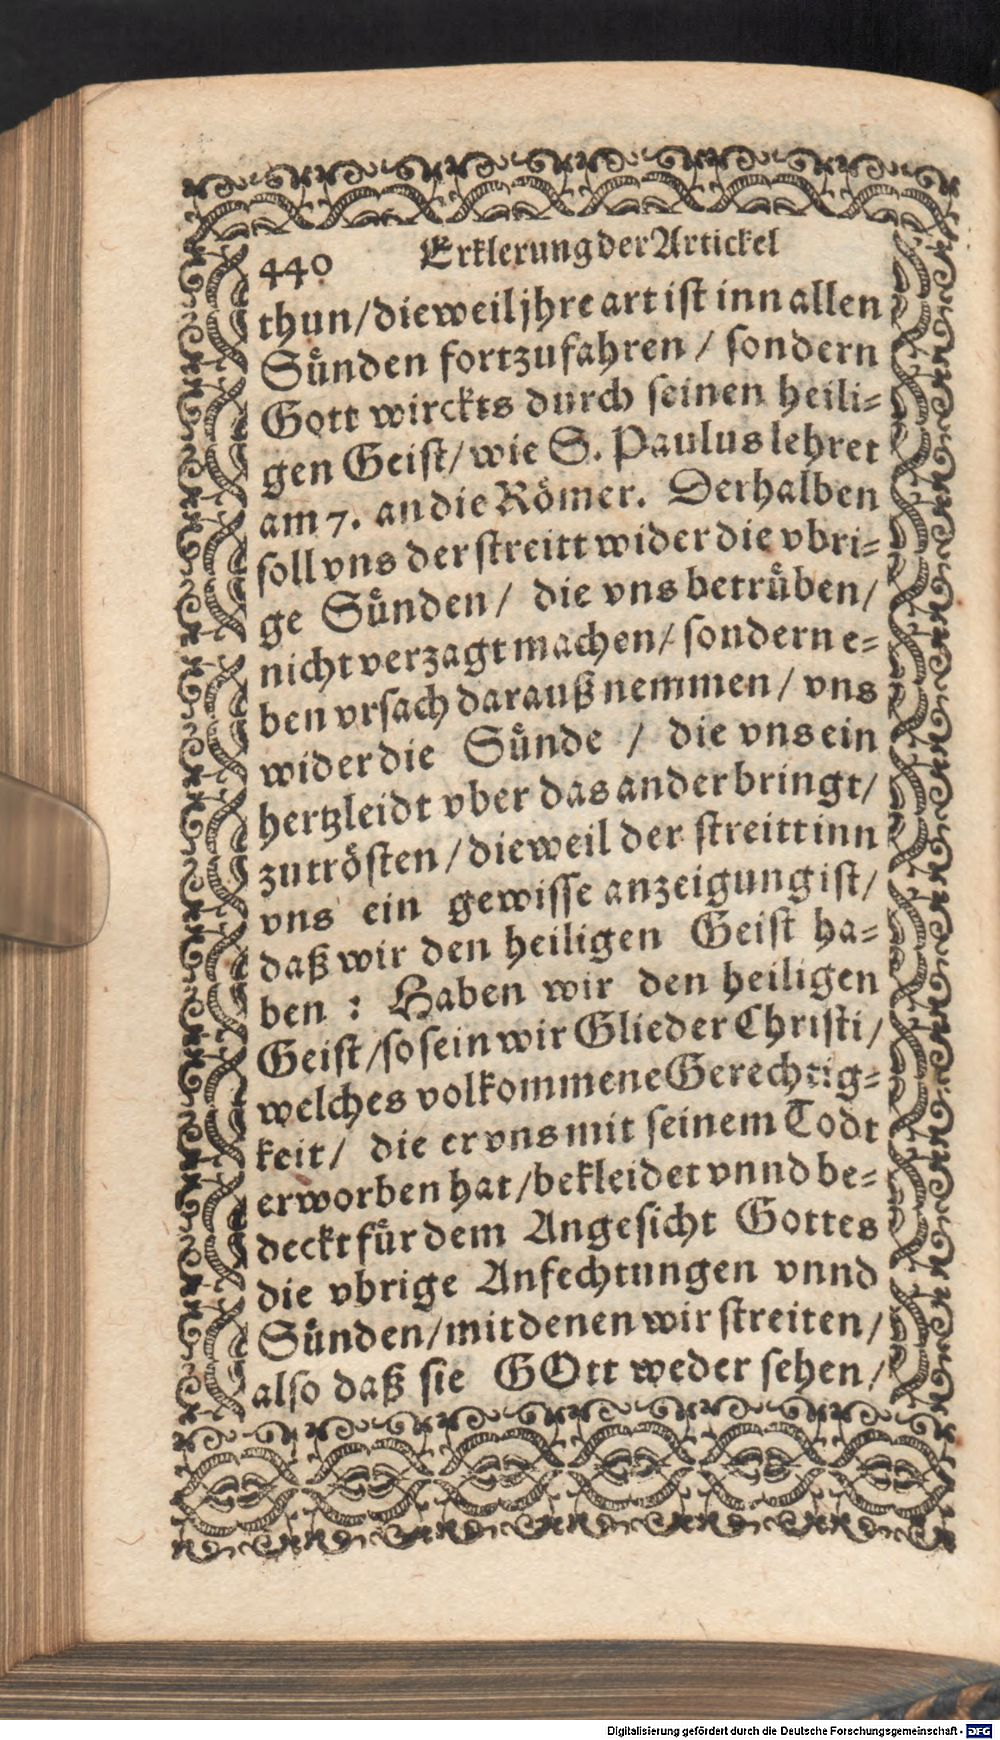 440 Erklerung der Artickel
thun/dieweil jhre art ist inn allen
Sünden fortzufahren / sondern
Gott wirckts durch seinen heili=
gen Geist/ wie S. Paulus lehret
am 7. an die Römer. Derhalben
soll vns der streitt wider die vbri=
ge Sünden/ die vns betrüben/
nicht verzagt machen/ sondern e=
ben vrsach darauß nemmen/ vns
wider die Sünde / die vns ein
hertzleidt vber das ander bringt/
zu trösten/ dieweil der streitt inn
vns ein gewisse anzeigung ist/
daß wir den heiligen Geist ha=
ben : Haben wir den heiligen
Geist/so sein wir Glieder Christi/
welches volkommene Gerechtig=
keit/ die er vns mit seinem Todt
erworben hat/bekleidet vnnd be=
deckt für dem Angesicht Gottes
die vbrige Anfechtungen vnnd
Sünden/mit denen wir streiten/
also daß sie GOtt weder sehen/
Digitalisierung gefördert durch die Deutsche Forschungsgemeinschaft - DFG